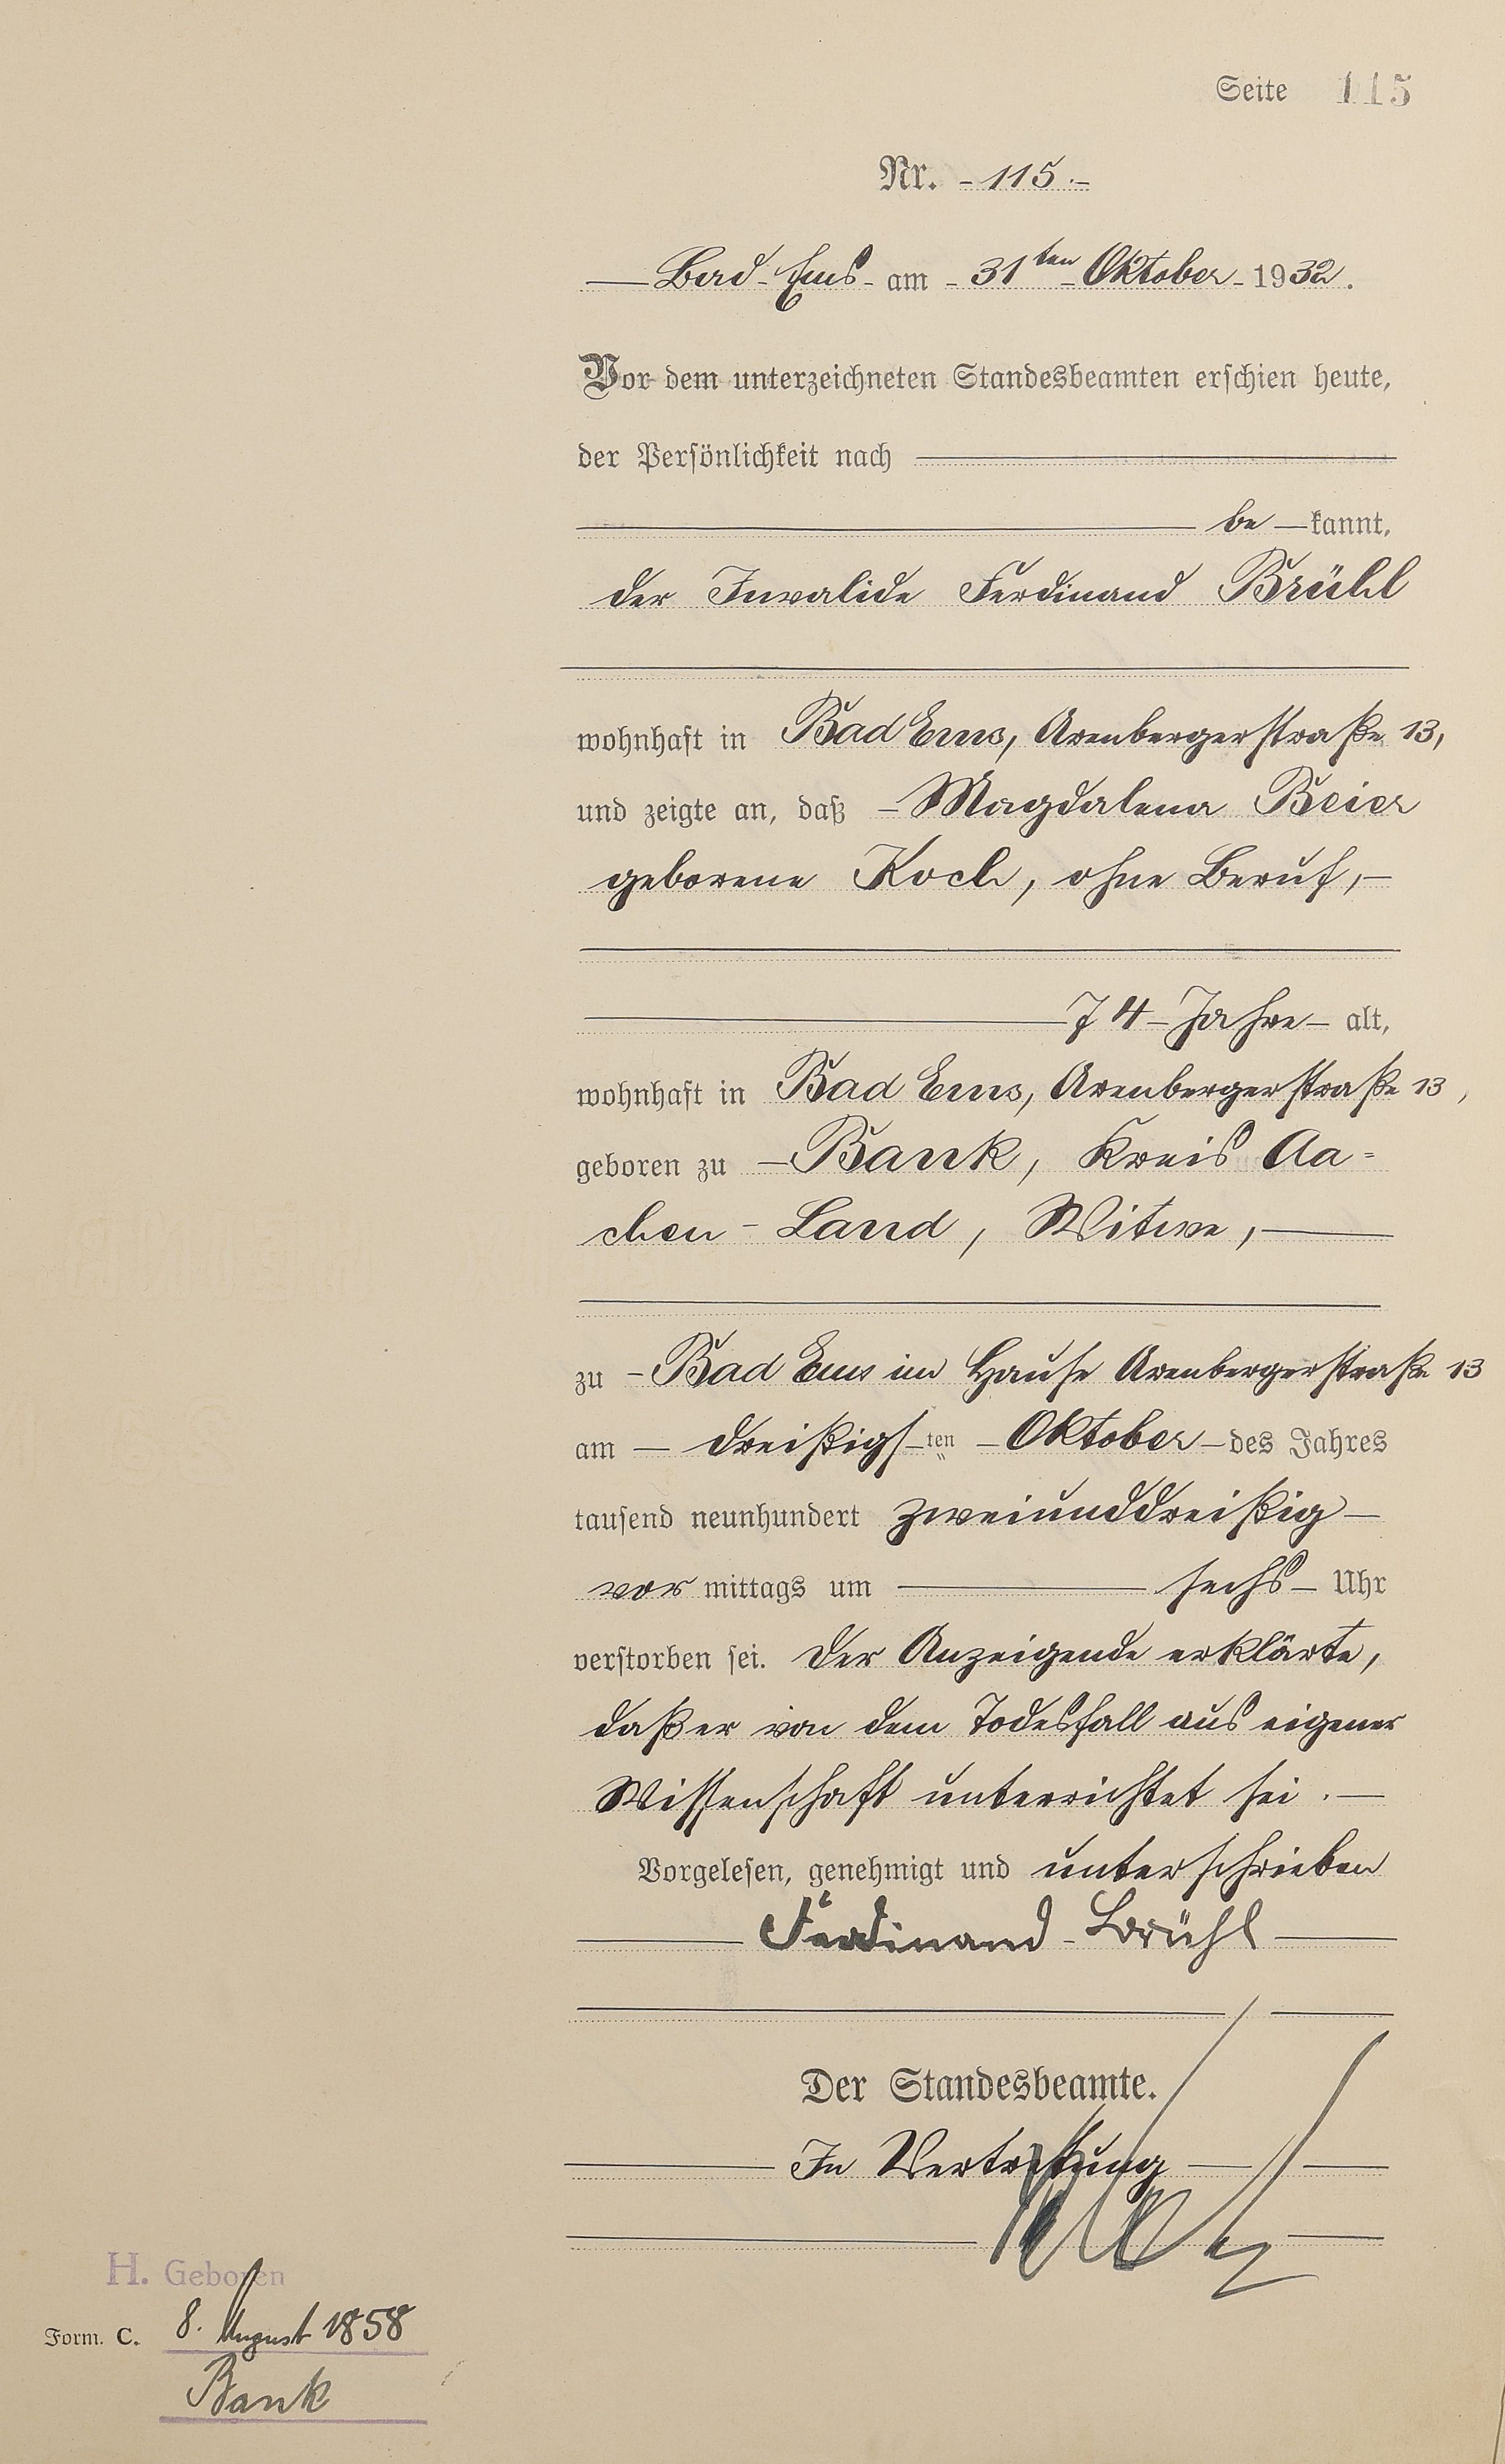 Seite 115
Nr. - 115.-
Bad-Ems- am - 31ten - Oktober - 1932.
Vor dem unterzeichneten Standesbeamten erschien heute,
der Persönlichkeit nach
be kannt,
der Invalide Ferdinand Brühl
wohnhaft in Bad Ems, Arenbergerstraße 13,
und zeigte an, daß - Magdalena Beier
geborene Koch, ohne Beruf, -
74 - Jahre - alt,
wohnhaft in Bad Ems, Arenbergerstraße 13,
geboren zu - Bank, Kreis Aa=
chen - Land, Witwe,
zu - Bad Ems im Hause Arenbergerstraße 13
am - dreißigs-ten - Oktober - des Jahres
tausend neunhundert zweiunddreißig -
vor mittags um sechs - Uhr
verstorben sei. Der Anzeigende erklärte,
daß er von dem Todesfall aus eigener
Wissenschaft unterrichtet sei. -
Vorgelesen, genehmigt und unterschrieben
Ferdinand - Brühl
Der Standesbeamte.
In Vertretung
H. Geboren
Form. C. 8. August 1858
Bank